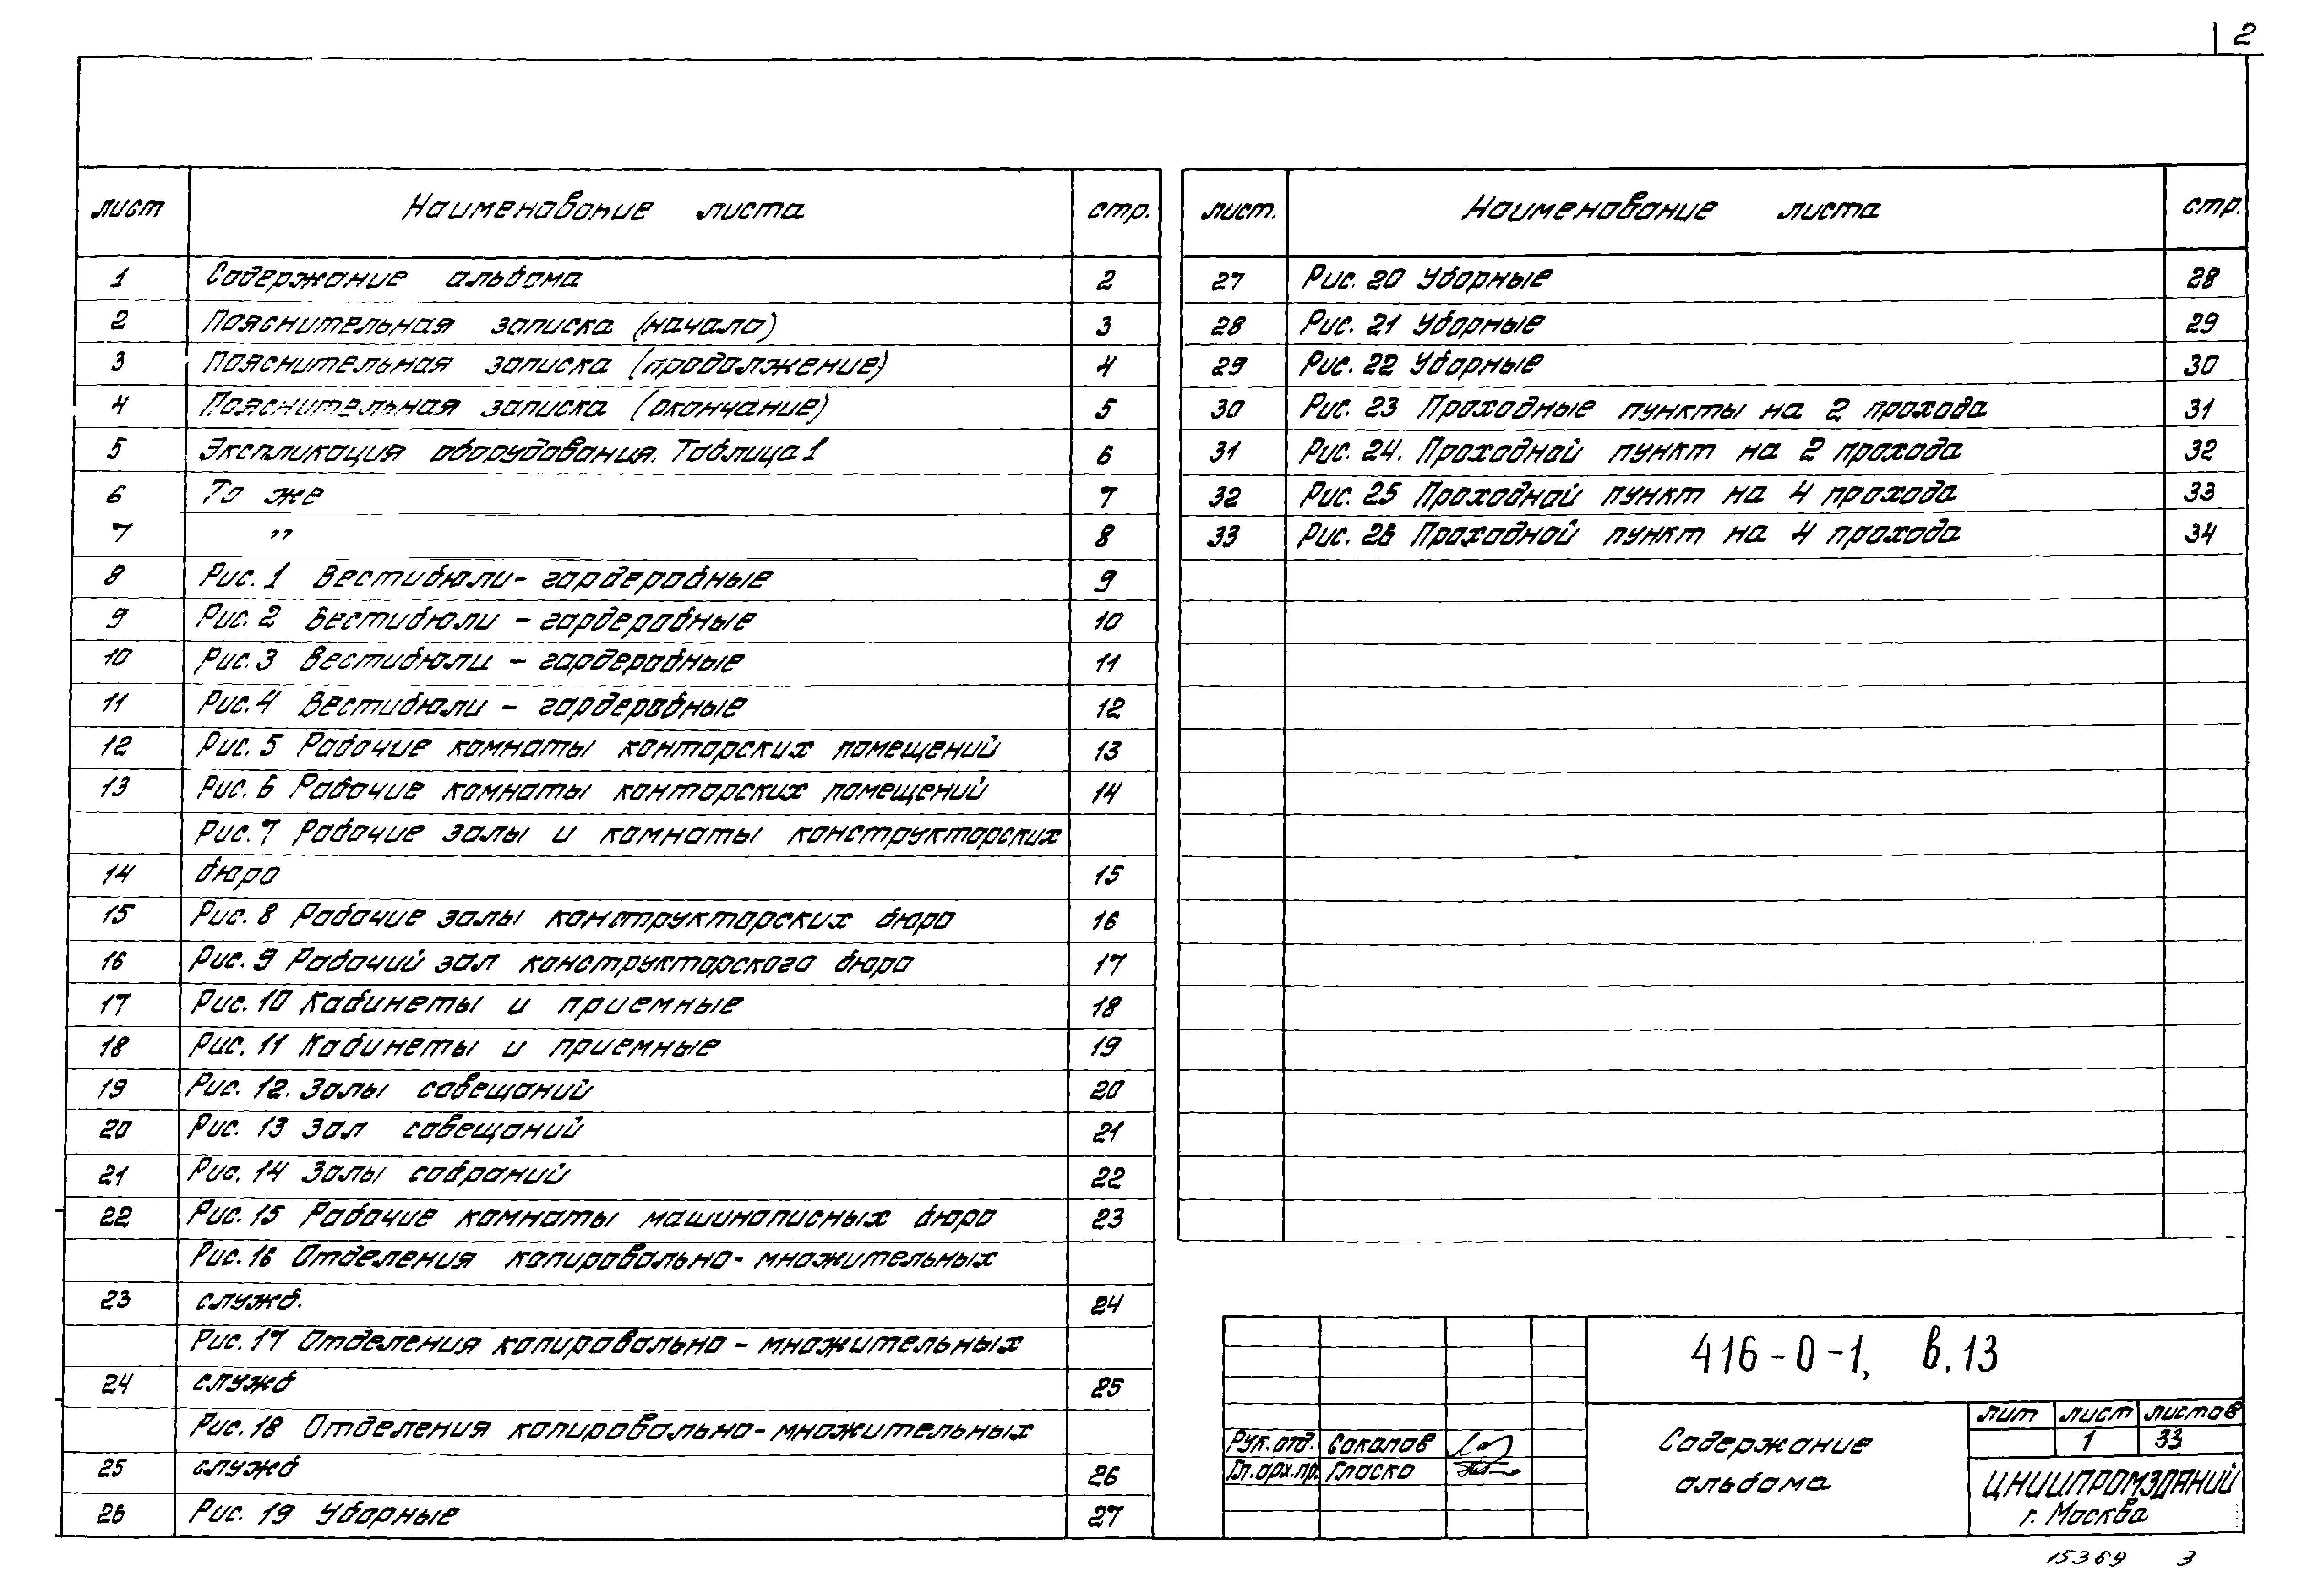 2
лист Наименование листа стр.
1 Содержание альбома 2
2 Пояснительная записка (начало) 3
3 Пояснительная записка (продолжение) 4
4 Пояснительная записка (окончание) 5
5 Экспликация оборудования. Таблица 1 6
6 То же 7
7 " 8
8 Рис. 1 Вестибюли - гардеробные 9
9 Рис. 2 Вестибюли - гардеробные 10
10 Рис. 3 Вестибюли - гардеробные 11
11 Рис. 4 Вестибюли - гардеробные 12
12 Рис. 5 Рабочие комнаты конторских помещений 13
13 Рис. 6 Рабочие комнаты конторских помещений 14
Рис. 7 Рабочие залы и комнаты конструкторских
14 бюро 15
15 Рис. 8 Рабочие залы конструкторских бюро 16
16 Рис. 9 Рабочий зал конструкторского бюро 17
17 Рис. 10 Кабинеты и приемные 18
18 Рис. 11 Кабинеты и приемные 19
19 Рис. 12. Залы совещаний 20
20 Рис. 13 Зал совещаний 21
21 Рис. 14 Залы собраний 22
22 Рис. 15 Рабочие комнаты машинописных бюро 23
Рис. 16 Отделения копировально - множительных
23 служб. 24
Рис. 17 Отделения копировально - множительных
24 служб 25
Рис. 18 Отделения копировально - множительных
25 служб 26
26 Рис. 19 Уборные 27
лист. Наименование листа стр.
27 Рис. 20 Уборные 28
28 Рис. 21 Уборные 29
29 Рис. 22 Уборные 30
30 Рис. 23 Проходные пункты на 2 прохода 31
31 Рис. 24. Проходной пункт на 2 прохода 32
32 Рис. 25 Проходной пункт на 4 прохода 33
33 Рис. 26 Проходной пункт на 4 прохода 34
416-0-1, в.13
Рук. отд. Соколов
Гл. арх. пр. Гласко
Содержание
альбома
лит лист листов
1 33
ЦНИИПРОМЗДАНИЙ
г. Москва
15369 3